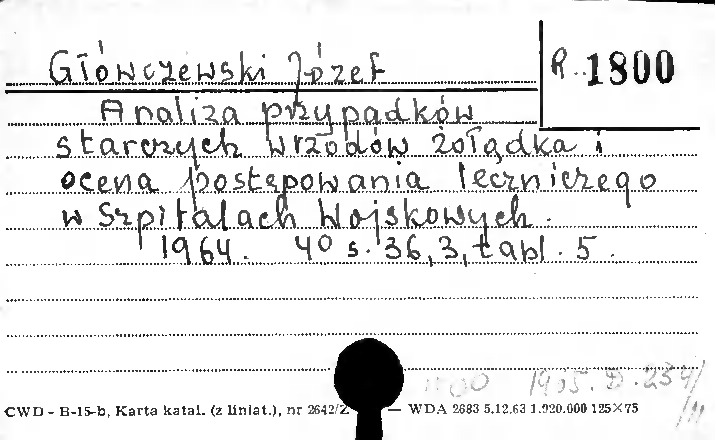 Główczewski Józef
R. 1800
Analiza przypadków
starczych wrzodów żołądka i
ocena postępowania leczniczego
w Szpitalach Wojskowych.
1964. 40 s. 36,3, tabl. 5.
CWD - B-15-b, Karta katal. (z liniat.), nr 2642/Z — WDA 2683 5.12.63 1.920.000 125×75